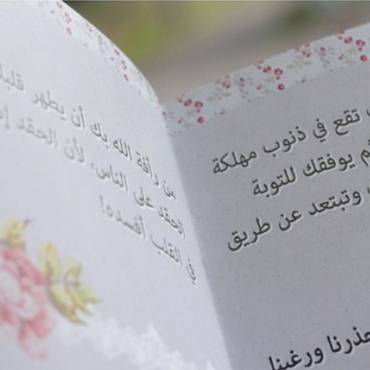 تقع في ذنوب مهلكة
ثم يوفقك للتوبة
وتبتعد عن طريق
حذرنا ورغبنا
من رأفة الله بك أن يطهر قلبك
الحقد على الناس، لأن الحقد إذا
في القلب أفسده!